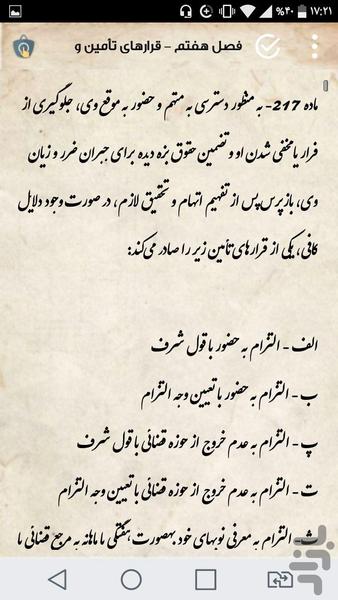 %۴۰ ۱۷:۲۱
فصل هفتم - قرارهای تأمین و
ماده 217- به منظور دسترسی به متهم و حضور به موقع وی، جلوگیری از
فرار یا مخفی شدن او و تضمین حقوق بزه دیده برای جبران ضرر و زیان
وی، بازپرس پس از تفهیم اتهام و تحقیق لازم، در صورت وجود دلایل
کافی، یکی از قرارهای تأمین زیر را صادر می‌کند:
الف - التزام به حضور با قول شرف
ب - التزام به حضور با تعیین وجه التزام
پ - التزام به عدم خروج از حوزه قضائی با قول شرف
ت - التزام به عدم خروج از حوزه قضائی با تعیین وجه التزام
ث - التزام به معرفی نوبه‎ای خود به‎صورت هفتگی یا ماهانه به مرجع قضائی یا